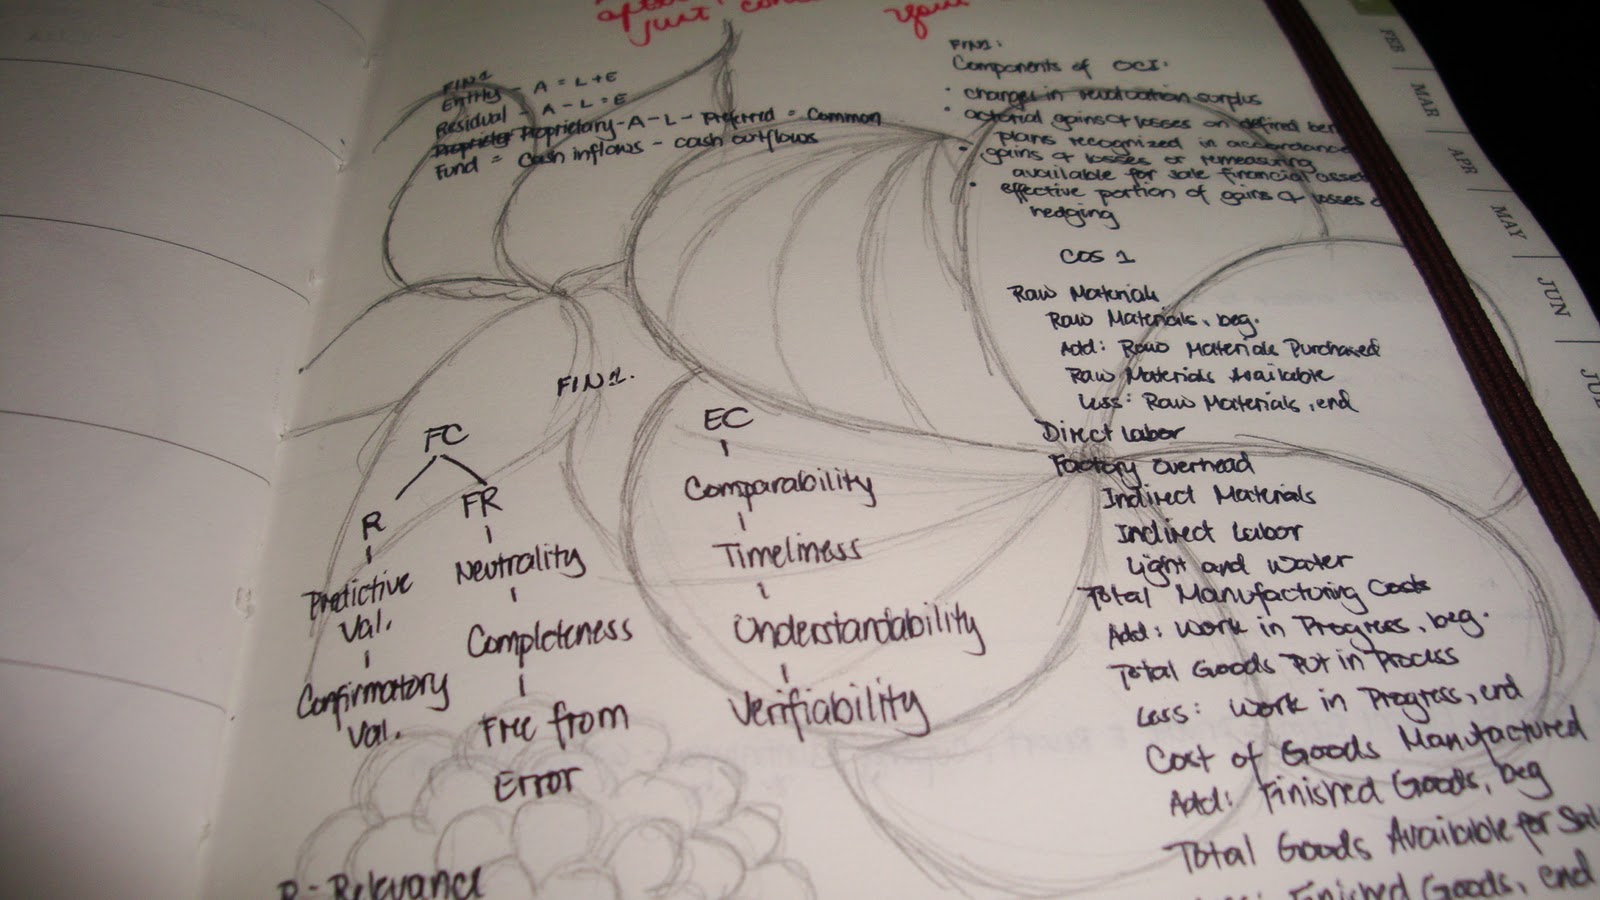 just
your
FIN1
Entity - A = L + E
Residual - A - L = E
Proprietary - A - L - Preferred = Common
Fund = Cash inflows - cash outflows
FIN1:
Components of OCI:
• changes in revaluation surplus
• actorial gains & losses on defined ben
plans recognized in accordance
• gains & losses or remeasuring
available for sale financial asset
• effective portion of gains & losses o
hedging
COS 1
Raw Materials
Raw Materials, beg.
Add: Raw Materials Purchased
Raw Materials Available
Less: Raw Materials, end
Direct Labor
Factory Overhead
Indirect Materials
Indirect Labor
Light and Water
Total Manufacturing Costs
Add: Work in Progress, beg.
Total Goods Put in Process
Less: Work in Progress, end
Cost of Goods Manufactured
Add: Finished Goods, beg
Total Goods Available for Sal
Finished Goods, end
FIN1.
FC
R
FR
Predictive
Val.
Confirmatory
Val.
Neutrality
Completeness
Free from
Error
EC
Comparability
Timeliness
Understandability
Verifiability
R - Relevance
FEB
MAR
APR
MAY
JUN
JU